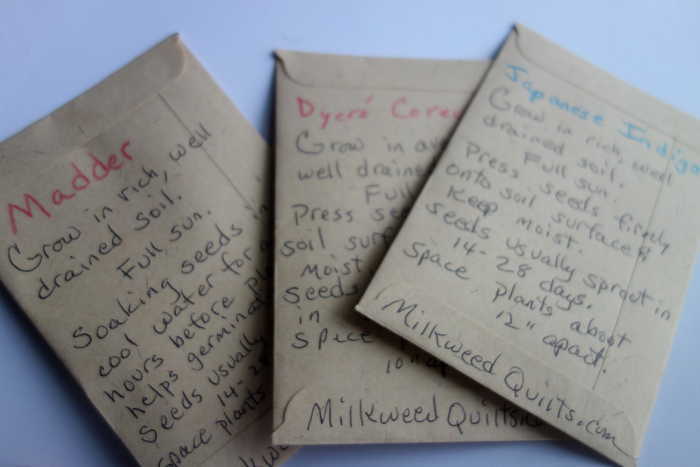 Madder
Grow in rich, well
drained soil.
Full sun.
Soaking seeds in
cool water for
hours before
helps
Seeds usually
14-28
space plants
Dyers'
Grow in
well
Full
Press
soil
Moist
Seeds
in
Space
10"
Milkweed
Japanese Indigo
Grow in rich, well
drained soil.
Full sun.
Press seeds firmly
onto soil surface &
Keep moist.
Seeds usually sprout in
14-28 days.
Space plants about
12" apart.
Milkweed Quilts.com